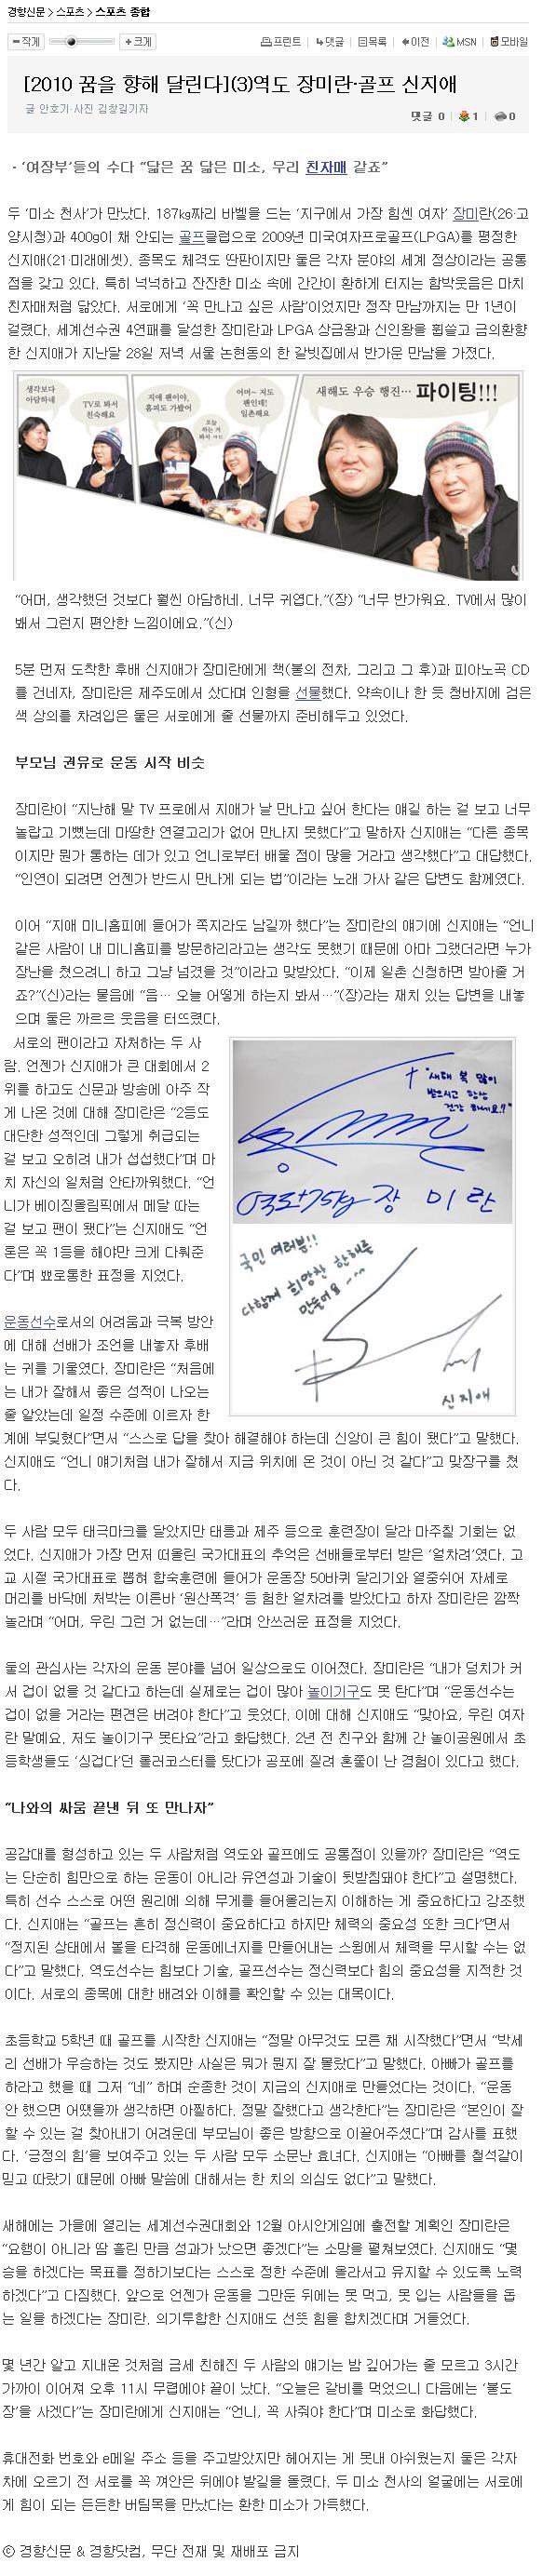 경향신문 > 스포츠 > 스포츠 종합
작게 크게 프린트 댓글 목록 이전 MSN 모바일
[2010 꿈을 향해 달린다](3)역도 장미란·골프 신지애
글 안호기·사진 김창길기자
댓글 0 1 0
· ‘여장부’들의 수다 “닮은 꿈 닮은 미소, 우리 친자매 같죠”
두 ‘미소 천사’가 만났다. 187㎏짜리 바벨을 드는 ‘지구에서 가장 힘센 여자’ 장미란(26·고
양시청)과 400g이 채 안되는 골프클럽으로 2009년 미국여자프로골프(LPGA)를 평정한
신지애(21·미래에셋). 종목도 체격도 딴판이지만 둘은 각자 분야의 세계 정상이라는 공통
점을 갖고 있다. 특히 넉넉하고 잔잔한 미소 속에 간간이 환하게 터지는 함박웃음은 마치
친자매처럼 닮았다. 서로에게 ‘꼭 만나고 싶은 사람’이었지만 정작 만남까지는 만 1년이
걸렸다. 세계선수권 4연패를 달성한 장미란과 LPGA 상금왕과 신인왕을 휩쓸고 금의환향
한 신지애가 지난달 28일 저녁 서울 논현동의 한 갈빗집에서 반가운 만남을 가졌다.
생각보다
아담하네
TV로 봐서
친숙해요
지애 팬이야,
홈피도 가봤어
오늘
하는 거
봐서 ㅋㄷ
어머~ 저도
팬인데!
일촌해요
새해도 우승 행진… 파이팅!!!
“어머, 생각했던 것보다 훨씬 아담하네. 너무 귀엽다.”(장) “너무 반가워요. TV에서 많이
봐서 그런지 편안한 느낌이에요.”(신)
5분 먼저 도착한 후배 신지애가 장미란에게 책(불의 전차, 그리고 그 후)과 피아노곡 CD
를 건네자, 장미란은 제주도에서 샀다며 인형을 선물했다. 약속이나 한 듯 청바지에 검은
색 상의를 차려입은 둘은 서로에게 줄 선물까지 준비해두고 있었다.
부모님 권유로 운동 시작 비슷
장미란이 “지난해 말 TV 프로에서 지애가 날 만나고 싶어 한다는 얘길 하는 걸 보고 너무
놀랍고 기뻤는데 마땅한 연결고리가 없어 만나지 못했다”고 말하자 신지애는 “다른 종목
이지만 뭔가 통하는 데가 있고 언니로부터 배울 점이 많을 거라고 생각했다”고 대답했다.
“인연이 되려면 언젠가 반드시 만나게 되는 법”이라는 노래 가사 같은 답변도 함께였다.
이어 “지애 미니홈피에 들어가 쪽지라도 남길까 했다”는 장미란의 얘기에 신지애는 “언니
같은 사람이 내 미니홈피를 방문하리라고는 생각도 못했기 때문에 아마 그랬더라면 누가
장난을 쳤으려니 하고 그냥 넘겼을 것”이라고 맞받았다. “이제 일촌 신청하면 받아줄 거
죠?”(신)라는 물음에 “음… 오늘 어떻게 하는지 봐서…”(장)라는 재치 있는 답변을 내놓
으며 둘은 까르르 웃음을 터뜨렸다.
서로의 팬이라고 자처하는 두 사
람. 언젠가 신지애가 큰 대회에서 2
위를 하고도 신문과 방송에 아주 작
게 나온 것에 대해 장미란은 “2등도
대단한 성적인데 그렇게 취급되는
걸 보고 오히려 내가 섭섭했다”며 마
치 자신의 일처럼 안타까워했다. “언
니가 베이징올림픽에서 메달 따는
걸 보고 팬이 됐다”는 신지애도 “언
론은 꼭 1등을 해야만 크게 다뤄준
다”며 뾰로통한 표정을 지었다.
“새해 복 많이
받으시고 항상
건강하세요!!”
역도+75kg 장미란
국민 여러분!!
다함께 희망찬 한해를
만들어요~~
신지애
운동선수로서의 어려움과 극복 방안
에 대해 선배가 조언을 내놓자 후배
는 귀를 기울였다. 장미란은 “처음에
는 내가 잘해서 좋은 성적이 나오는
줄 알았는데 일정 수준에 이르자 한
계에 부딪혔다”면서 “스스로 답을 찾아 해결해야 하는데 신앙이 큰 힘이 됐다”고 말했다.
신지애도 “언니 얘기처럼 내가 잘해서 지금 위치에 온 것이 아닌 것 같다”고 맞장구를 쳤
다.
두 사람 모두 태극마크를 달았지만 태릉과 제주 등으로 훈련장이 달라 마주칠 기회는 없
었다. 신지애가 가장 먼저 떠올린 국가대표의 추억은 선배들로부터 받은 ‘얼차려’였다. 고
교 시절 국가대표로 뽑혀 합숙훈련에 들어가 운동장 50바퀴 달리기와 열중쉬어 자세로
머리를 바닥에 처박는 이른바 ‘원산폭격’ 등 험한 얼차려를 받았다고 하자 장미란은 깜짝
놀라며 “어머, 우린 그런 거 없는데…”라며 안쓰러운 표정을 지었다.
둘의 관심사는 각자의 운동 분야를 넘어 일상으로도 이어졌다. 장미란은 “내가 덩치가 커
서 겁이 없을 것 같다고 하는데 실제로는 겁이 많아 놀이기구도 못 탄다”며 “운동선수는
겁이 없을 거라는 편견은 버려야 한다”고 웃었다. 이에 대해 신지애도 “맞아요, 우린 여자
란 말예요. 저도 놀이기구 못타요”라고 화답했다. 2년 전 친구와 함께 간 놀이공원에서 초
등학생들도 ‘싱겁다’던 롤러코스터를 탔다가 공포에 질려 혼쭐이 난 경험이 있다고 했다.
“나와의 싸움 끝낸 뒤 또 만나자”
공감대를 형성하고 있는 두 사람처럼 역도와 골프에도 공통점이 있을까? 장미란은 “역도
는 단순히 힘만으로 하는 운동이 아니라 유연성과 기술이 뒷받침돼야 한다”고 설명했다.
특히 선수 스스로 어떤 원리에 의해 무게를 들어올리는지 이해하는 게 중요하다고 강조했
다. 신지애는 “골프는 흔히 정신력이 중요하다고 하지만 체력의 중요성 또한 크다”면서
“정지된 상태에서 볼을 타격해 운동에너지를 만들어내는 스윙에서 체력을 무시할 수는 없
다”고 말했다. 역도선수는 힘보다 기술, 골프선수는 정신력보다 힘의 중요성을 지적한 것
이다. 서로의 종목에 대한 배려와 이해를 확인할 수 있는 대목이다.
초등학교 5학년 때 골프를 시작한 신지애는 “정말 아무것도 모른 채 시작했다”면서 “박세
리 선배가 우승하는 것도 봤지만 사실은 뭐가 뭔지 잘 몰랐다”고 말했다. 아빠가 골프를
하라고 했을 때 그저 “네” 하며 순종한 것이 지금의 신지애로 만들었다는 것이다. “운동
안 했으면 어땠을까 생각하면 아찔하다. 정말 잘했다고 생각한다”는 장미란은 “본인이 잘
할 수 있는 걸 찾아내기 어려운데 부모님이 좋은 방향으로 이끌어주셨다”며 감사를 표했
다. ‘긍정의 힘’을 보여주고 있는 두 사람 모두 소문난 효녀다. 신지애는 “아빠를 철석같이
믿고 따랐기 때문에 아빠 말씀에 대해서는 한 치의 의심도 없다”고 말했다.
새해에는 가을에 열리는 세계선수권대회와 12월 아시안게임에 출전할 계획인 장미란은
“요행이 아니라 땀 흘린 만큼 성과가 났으면 좋겠다”는 소망을 펼쳐보였다. 신지애도 “몇
승을 하겠다는 목표를 정하기보다는 스스로 정한 수준에 올라서고 유지할 수 있도록 노력
하겠다”고 다짐했다. 앞으로 언젠가 운동을 그만둔 뒤에는 못 먹고, 못 입는 사람들을 돕
는 일을 하겠다는 장미란. 의기투합한 신지애도 선뜻 힘을 합치겠다며 거들었다.
몇 년간 알고 지내온 것처럼 금세 친해진 두 사람의 얘기는 밤 깊어가는 줄 모르고 3시간
가까이 이어져 오후 11시 무렵에야 끝이 났다. “오늘은 갈비를 먹었으니 다음에는 ‘불도
장’을 사겠다”는 장미란에게 신지애는 “언니, 꼭 사줘야 한다”며 미소로 화답했다.
휴대전화 번호와 e메일 주소 등을 주고받았지만 헤어지는 게 못내 아쉬웠는지 둘은 각자
차에 오르기 전 서로를 꼭 껴안은 뒤에야 발길을 돌렸다. 두 미소 천사의 얼굴에는 서로에
게 힘이 되는 든든한 버팀목을 만났다는 환한 미소가 가득했다.
ⓒ 경향신문 & 경향닷컴, 무단 전재 및 재배포 금지